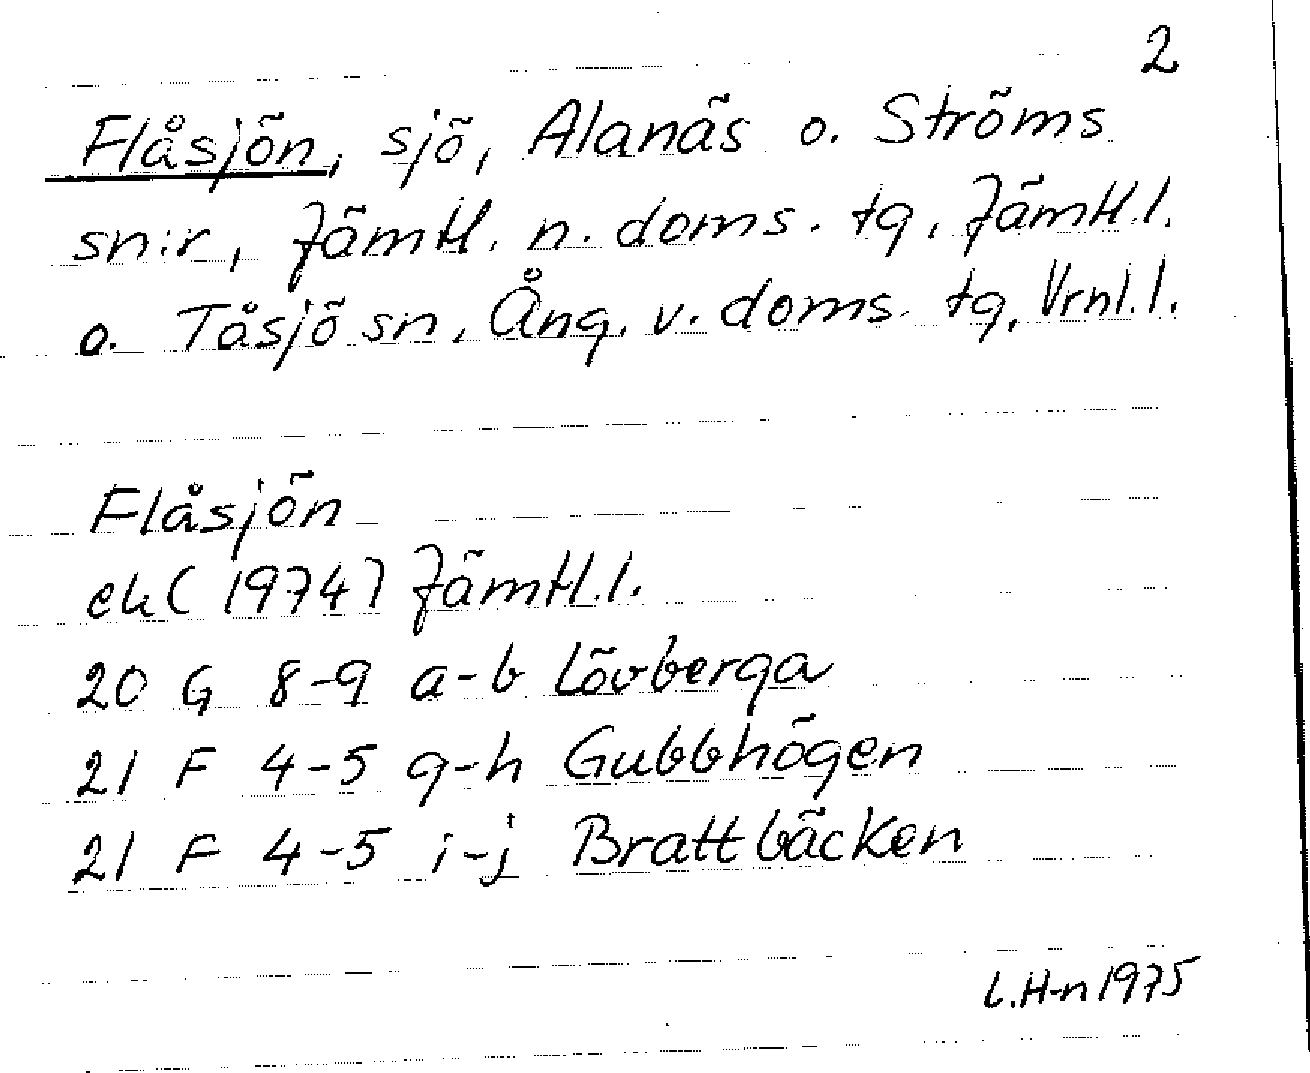 2
Flåsjön, sjö, Alanäs o. Ströms
sn:r, Jämtl. n. doms. tg, Jämtl.l.
o. Tåsjö sn, Ång. v. doms. tg, Vrnl.l.
Flåsjön
ek (1974) Jämtl.l.
20 G 8-9 a-b Lövberga
21 F 4-5 g-h Gubbhögen
21 F 4-5 i-j Brattbäcken
L.H-n 1975